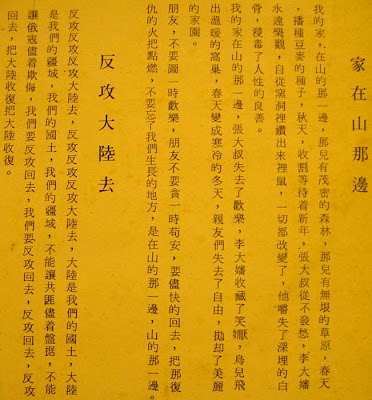 家在山那邊
我的家，在山的那一邊，那兒有茂密的森林，那兒有無垠的草原，春天
，播種豆麥的種子，秋天，收割等待着新年，張大叔從不發愁，李大嬸
永遠樂觀，自從窰洞裡鑽出來狸鼠，一切都改變了，他嚼失了深埋的白
骨，浸毒了人性的良善。
我的家在山的那一邊，張大叔失去了歡樂，李大嬸收藏了笑靨，鳥兒飛
出溫暖的窩巢，春天變成寒冷的冬天，親友們失去了自由，拋却了美麗
的家園。
朋友，不要圖一時歡樂，朋友不要貪一時苟安，要儘快的回去，把那復
仇的火把點燃，不要忘了我們生長的地方，是在山的那一邊，山的那一邊。
反攻大陸去
反攻反攻反攻大陸去，反攻反攻反攻大陸去，大陸是我們的國土，大陸
是我們的疆域，我們的國土，我們的疆域，不能讓共匪儘着盤据，不能
讓俄寇儘着欺侮，我們要反攻回去，我們要反攻回去，反攻回去，反攻
回去，把大陸收復把大陸收復。